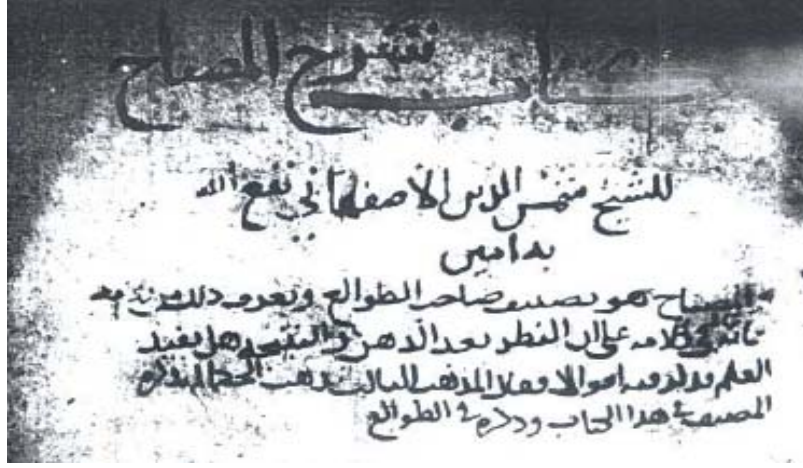 كتاب شرح المصباح
للشيخ شمس الدين الأصفهاني نفع الله
به امين
المصباح هو تصنيف صاحب الطوالع ويعرف ذلك من
كلامه على ان النظر يعد الذهن والنتيجة هل يفيد
العلم فيه احوالا المذهب الثالث مذهب الحكما
المصنف في هذا الكتاب وذكره في الطوالع